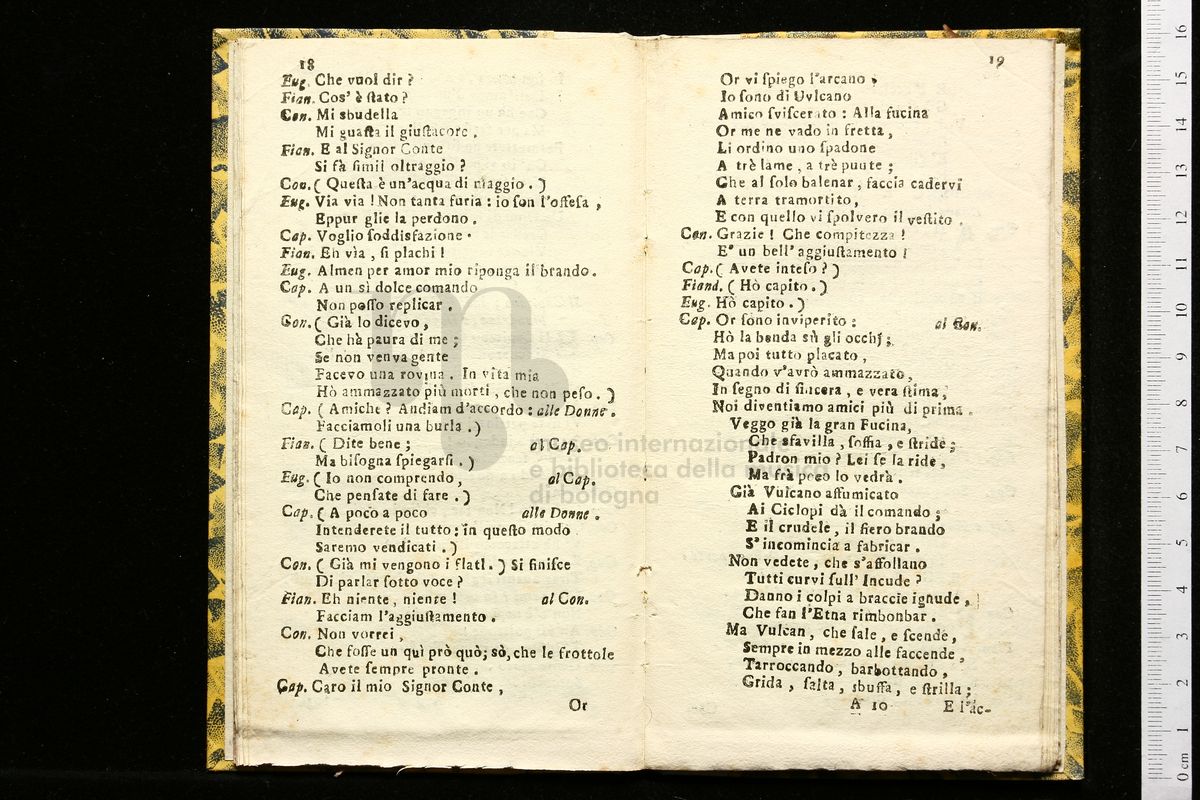 18
Eug. Che vuol dir ?
Fian. Cos' è ſtato ?
Con. Mi sbudella
Mi guaſta il giuſtacore .
Fian. E al Signor Conte
Si fà ſimil oltraggio ?
Con. ( Queſta è un'acqua di maggio . )
Eug. Via via ! Non tanta furia : io ſon l'offeſa ,
Eppur glie la perdono .
Cap. Voglio ſoddisfazione .
Fian. Eh via , ſi plachi !
Eug. Almen per amor mio riponga il brando .
Cap. A un sì dolce comando
Non poſſo replicar .
Con. ( Già lo dicevo ,
Che hà paura di me ;
Se non veniva gente
Facevo una rovina . In vita mia
Hò ammazzato più morti , che non peſo . )
Cap. ( Amiche ? Andiam d'accordo : alle Donne .
Facciamoli una burla . )
Fian. ( Dite bene ; al Cap.
Ma biſogna ſpiegarſi . )
Eug. ( Io non comprendo , al Cap.
Che penſate di fare . )
Cap. ( A poco a poco alle Donne .
Intenderete il tutto : in queſto modo
Saremo vendicati . )
Con. ( Già mi vengono i flati . ) Si finiſce
Di parlar ſotto voce ?
Fian. Eh niente , niente ! al Con.
Facciam l'aggiuſtamento .
Con. Non vorrei ,
Che foſſe un quì prò quò; sò, che le frottole
Avete ſempre pronte .
Cap. Caro il mio Signor Conte ,
Or
19
Or vi ſpiego l'arcano ,
Io ſono di Uvlcano
Amico ſviſcerato : Alla fucina
Or me ne vado in fretta ,
Li ordino uno ſpadone
A trè lame , a trè punte ;
Che al ſolo balenar , faccia cadervi
A terra tramortito ,
E con quello vi ſpolvero il veſtito .
Con. Grazie ! Che compitezza !
E' un bell' aggiuſtamento !
Cap. ( Avete inteſo ? )
Fiand. ( Hò capito . )
Eug. Hò capito . )
Cap. Or ſono inviperito : al Con.
Hò la benda sù gli occhj ;
Ma poi tutto placato ,
Quando v'avrò ammazzato ,
In ſegno di ſincera , e vera ſtima ,
Noi diventiamo amici più di prima .
Veggo già la gran Fucina,
Che sfavilla , ſoffia , e ſtride ;
Padron mio ? Lei ſe la ride ,
Ma frà poco lo vedrà .
Già Vulcano affumicato
Ai Ciclopi dà il comando ;
E il crudele , il fiero brando
S' incomincia a fabricar .
Non vedete , che s'affollano
Tutti curvi ſull' Incude ?
Danno i colpi a braccie ignude ,
Che fan l'Etna rimbonbar .
Ma Vulcan , che ſale , e ſcende ,
Sempre in mezzo alle faccende ,
Tarroccando , barbottando ,
Grida , ſalta , sbuffa , e ſtrilla ;
A 10 E l'ac-
museo internazionale
e biblioteca della musica
di bologna
0 cm 1 2 3 4 5 6 7 8 9 10 11 12 13 14 15 16